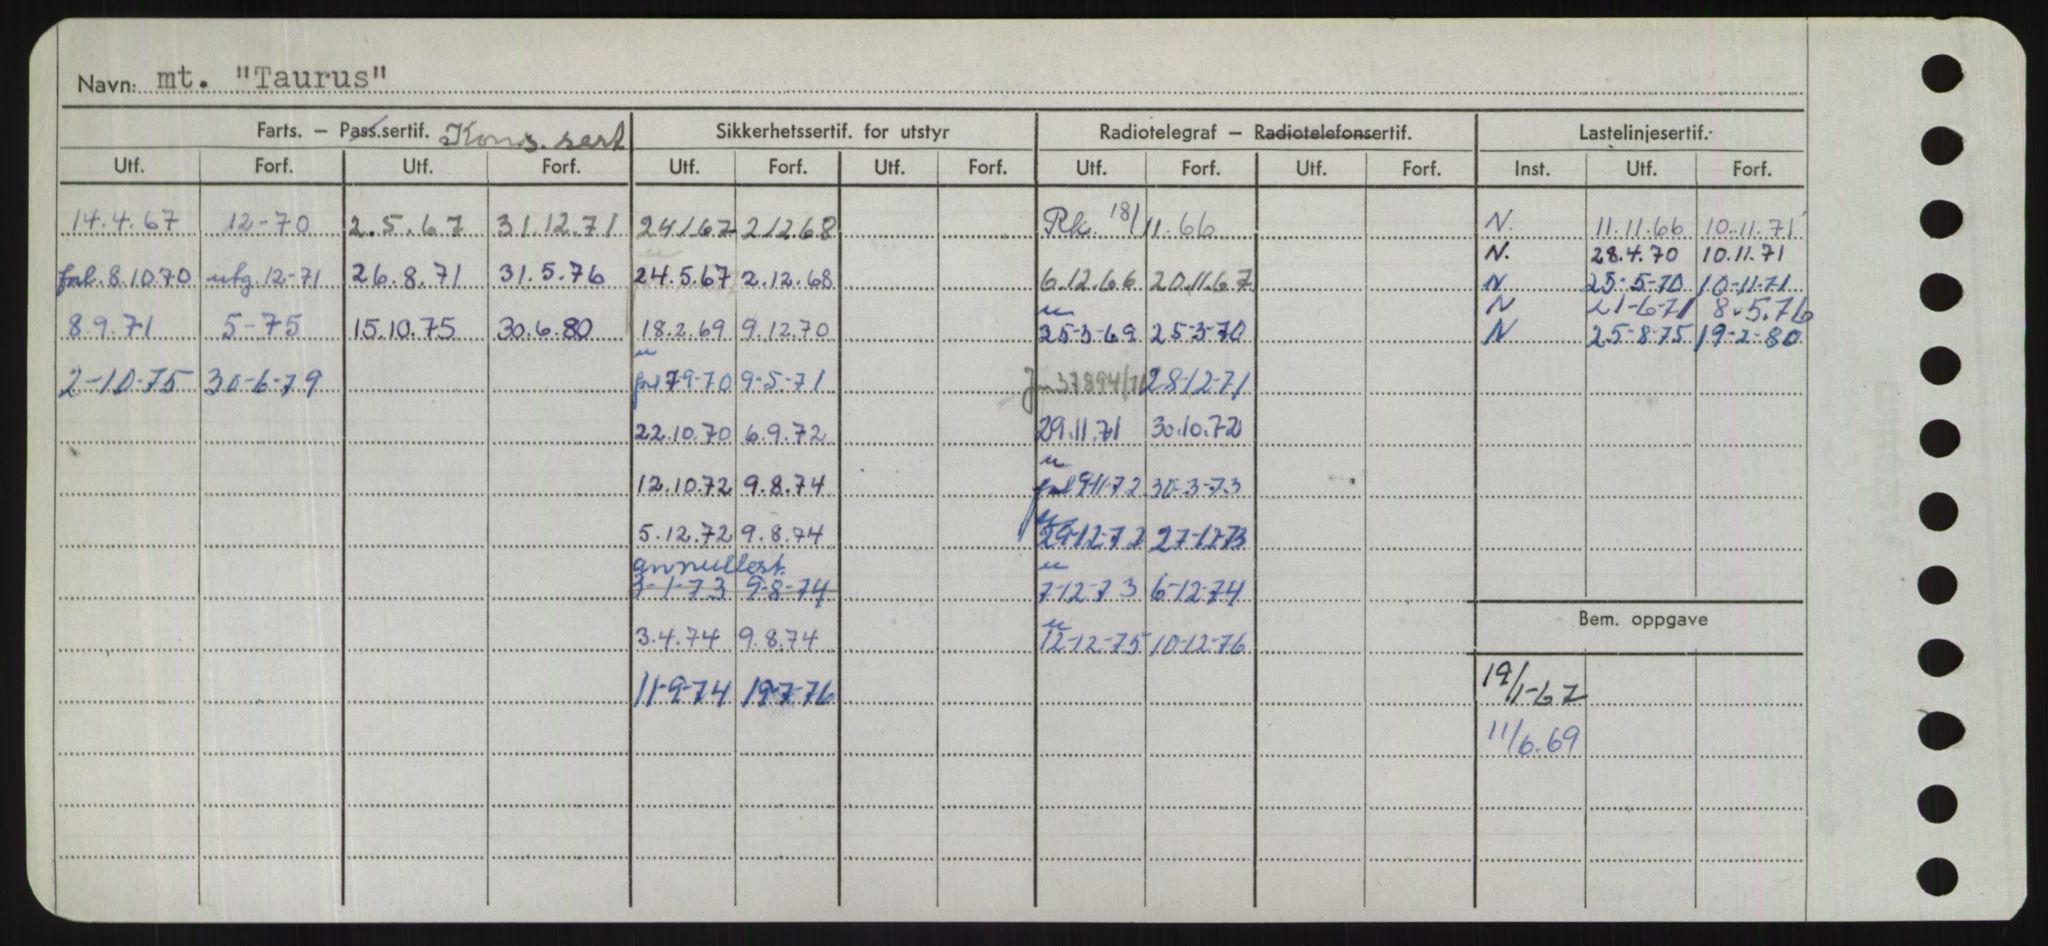 Navn: mt. "Taurus"
Farts. – Pass.sertif. Kons. sert Sikkerhetssertif. for utstyr Radiotelegraf – Radiotelefonsertif. Lastelinjesertif.
Utf. Forf. Utf. Forf. Utf. Forf. Utf. Forf. Utf. Forf. Utf. Forf. Inst. Utf. Forf.
14.4.67 12-70 2.5.67 31.12.71 24/1 67 2/12 68 Rk. 18/11.66 N. 11.11.66 10.11.71
N. 28.4.70 10.11.71
forl. 8.10.70 utg. 12-71 26.8.71 31.5.76 24.5.67 2.12.68 6.12.66 20.11.67 N 25-5-70 10-11-71
N 21-6-71 8-5.76
8.9.71 5-75 15.10.75 30.6.80 18.2.69 9.12.70 25-3-69 25-3-70 N 25-8-75 19-2-80
2-10-75 30-6-79 forl 7-9-70 9-5-71 Jn 37894/70 28-12-71
22.10.70 6.9.72 29.11.71 30.10.72
12.10.72 9.8.74 forl 9-11-72 30-3-73
5.12.72 9.8.74 29-12-72 27-12-73
annullert.
3-1-73 9-8-74 7-12-73 6-12-74
Bem. oppgave
3.4.74 9.8.74 12-12-75 10-12-76
11-9-74 19-7-76 19/1-67
11/6.69